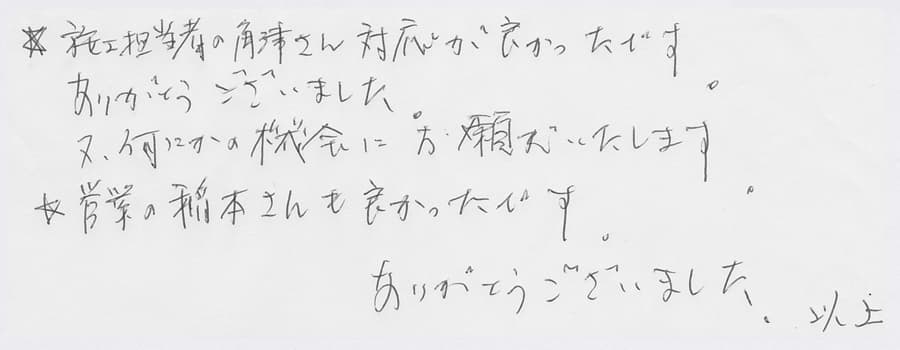 ☆ 施工担当者の角津さん 対応が良かったです。
ありがとうございました。
又、何にかの機会に お願いいたします。
☆ 営業の稲本さんも良かったです。
ありがとうございました。
以上